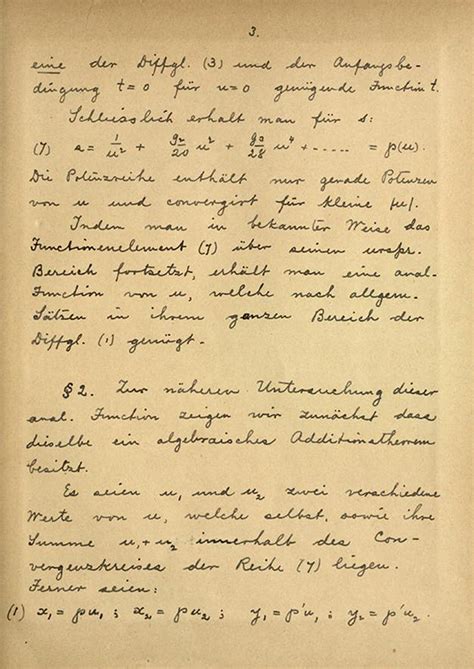 3.
eine der Diffgl. (3) und der Anfangsbe-
dingung t=0 für u=0 genügende Function t.
Schliesslich erhält man für s:
(7) s = 1/u² + g₂/20 u² + g₃/28 u⁴ + ..... = p(u).
Die Potenzreihe enthält nur gerade Potenzen
von u und convergirt für kleine |u|.
Indem man in bekannter Weise das
Functionenelement (7) über seinen urspr.
Bereich fortsetzt, erhält man eine anal.
Function von u, welche nach allgem.
Sätzen in ihrem ganzen Bereich der
Diffgl. (1) genügt.
§ 2. Zur näheren Untersuchung dieser
anal. Function zeigen wir zunächst dass
dieselbe ein algebraisches Additionstheorem
besitzt.
Es seien u₁ und u₂ zwei verschiedene
Werte von u, welche selbst, sowie ihre
Summe u₁+u₂ innerhalb des Con-
vergenzkreises der Reihe (7) liegen.
Ferner seien:
(1) x₁ = pu₁ ; x₂ = pu₂ ; y₁ = p'u₁ ; y₂ = p'u₂ .